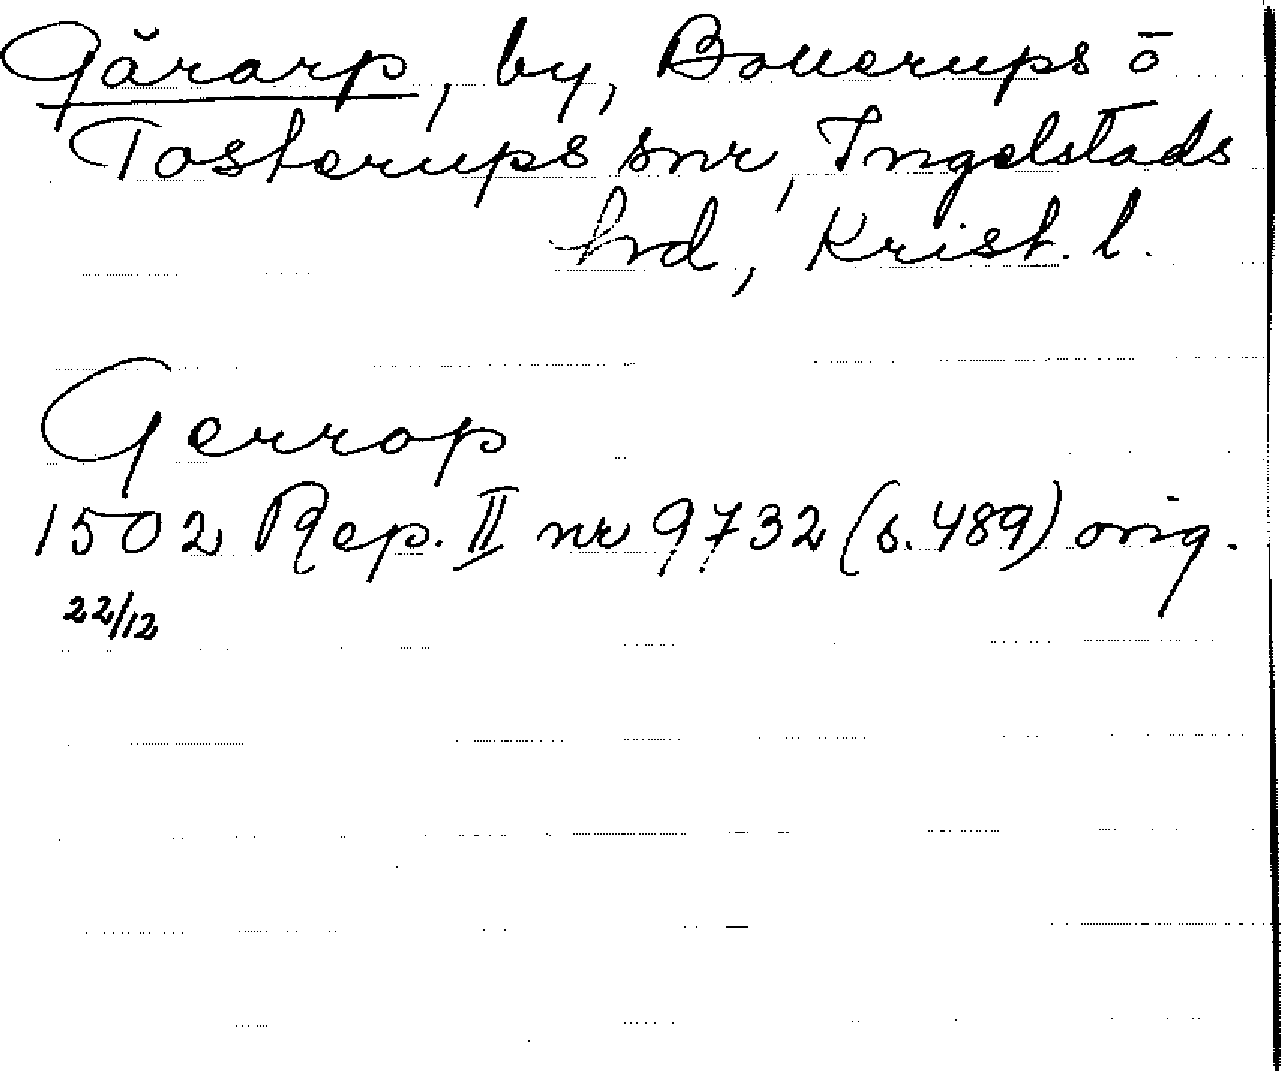 Gårarp, by, Bollerups o
Tosterups snr, Ingelstads
hd, Krist. l.
Gerrop
1502 Rep. II nr 9732 (s. 489) orig.
22/12